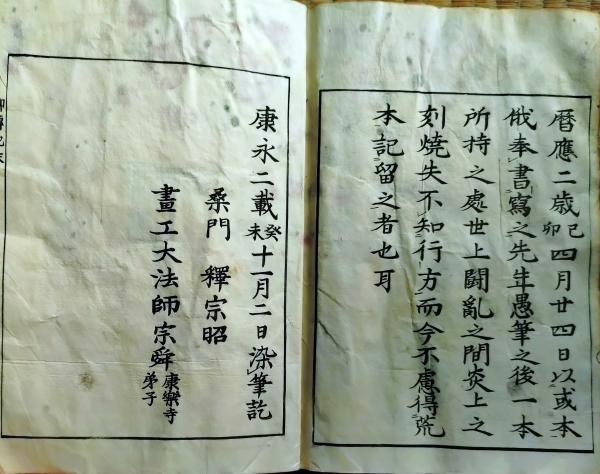 暦應二歳己卯四月廿四日以或本
俄奉書寫之先年愚筆之後一本
所持之處世上闘亂之間炎上之
刻燒失不知行方而今不慮得荒
本記留之者也耳
康永二載癸未十一月二日染筆訖
桑門 釋宗昭
畫工大法師宗舜康樂寺弟子